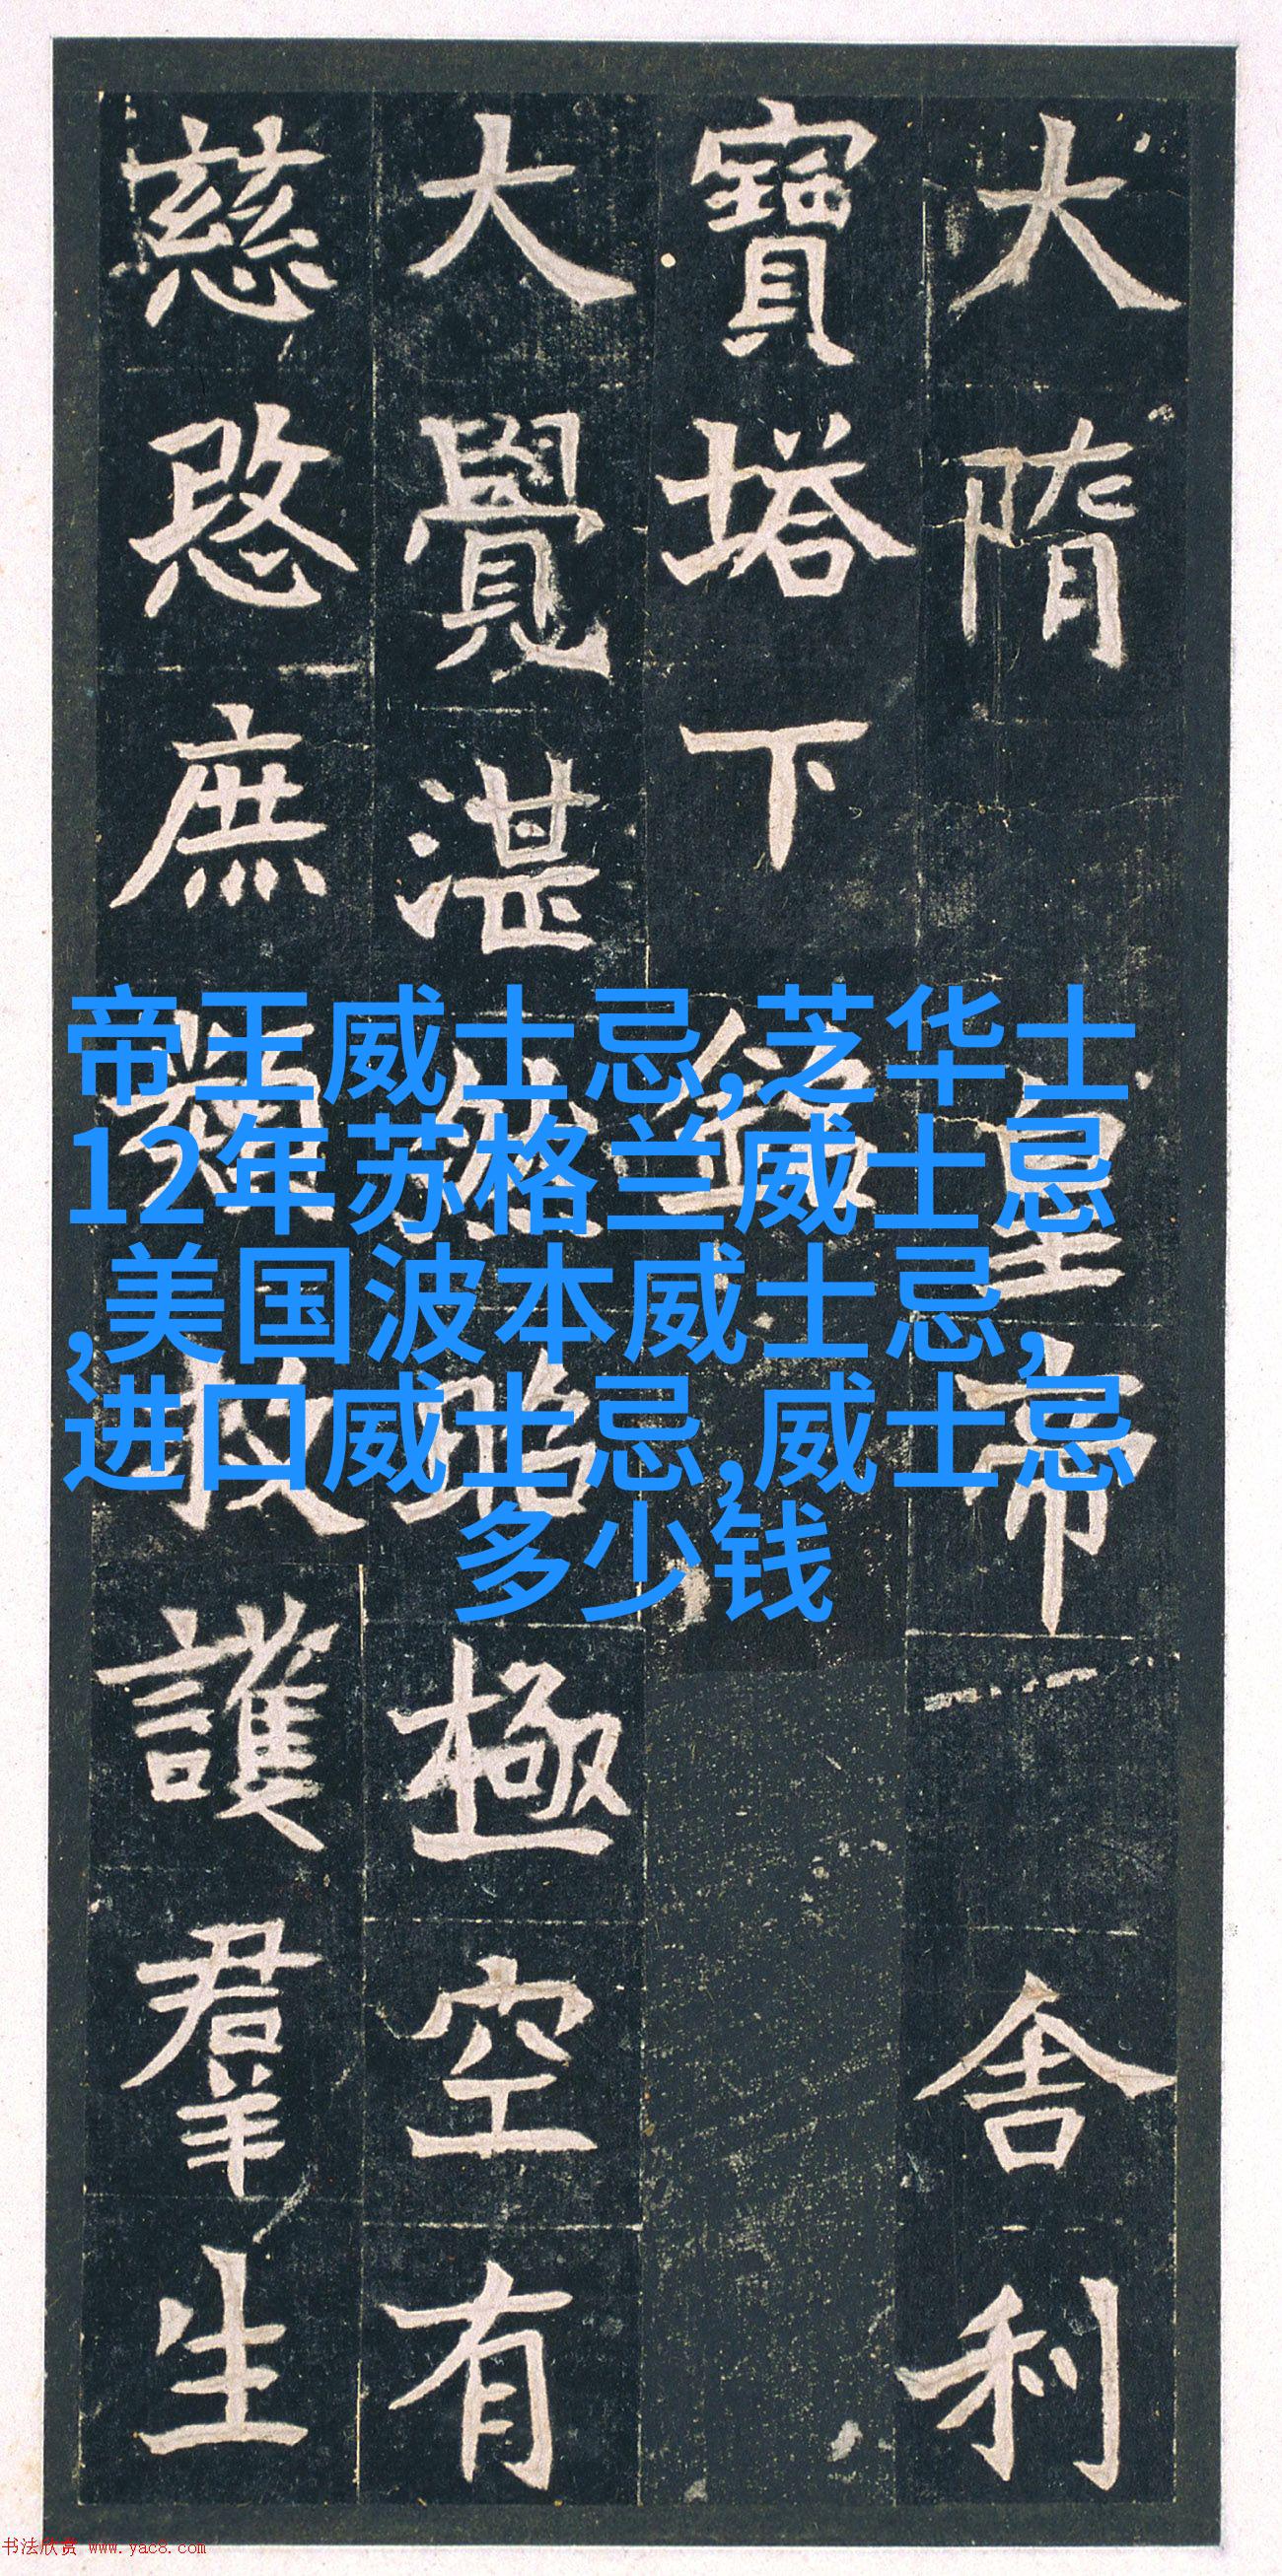 大隋皇帝舍利
寶塔下銘
大覺湛然昭極空有
慈愍庶類救護羣生
帝王威士忌,芝华士
12年苏格兰威士忌
,美国波本威士忌,
进口威士忌,威士忌
多少钱
书法欣赏 www.yac8.com